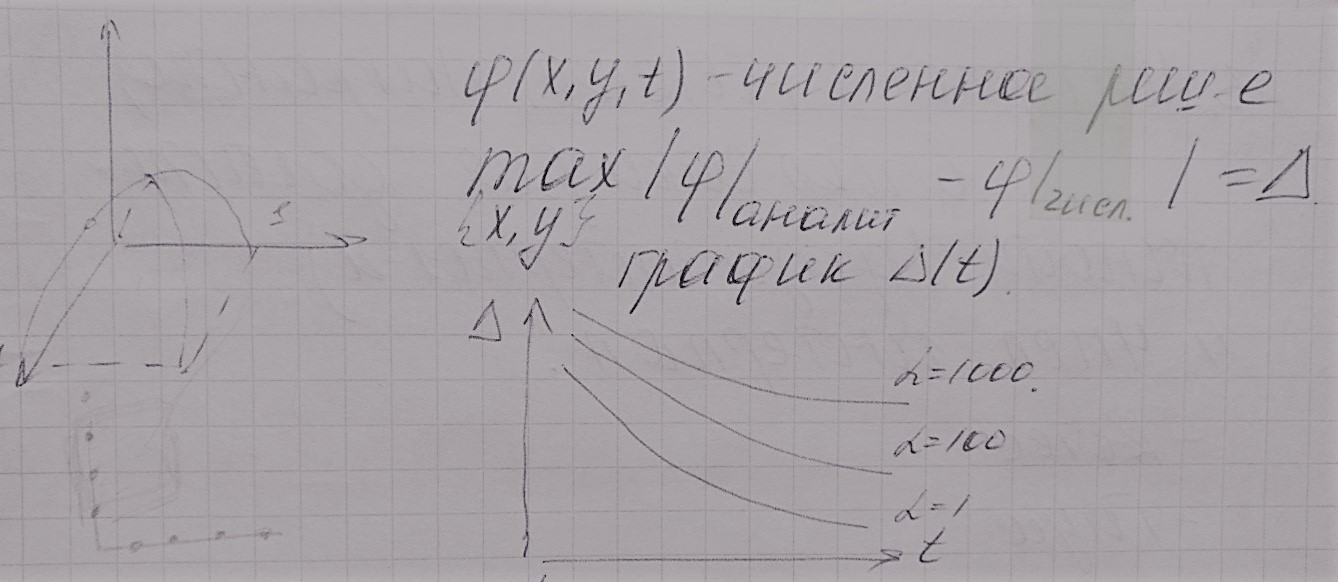 φ(x,y,t) - численное реш-е
max |φ|аналит - φ|числ. | = Δ.
{x,y}
график Δ(t).
1
Δ
α=1000.
α=100
α=1
t